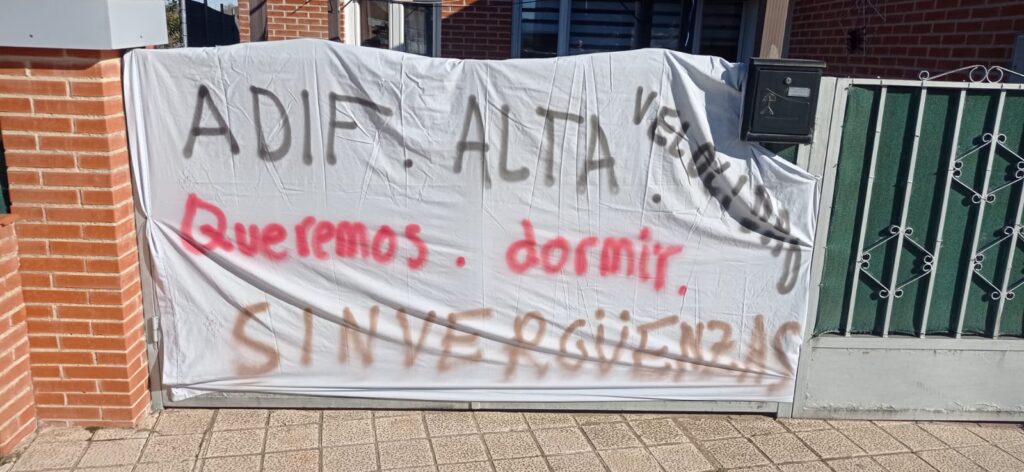 ADIF. ALTA VELOCIDAD.
Queremos. dormir.
SINVERGÜENZAS